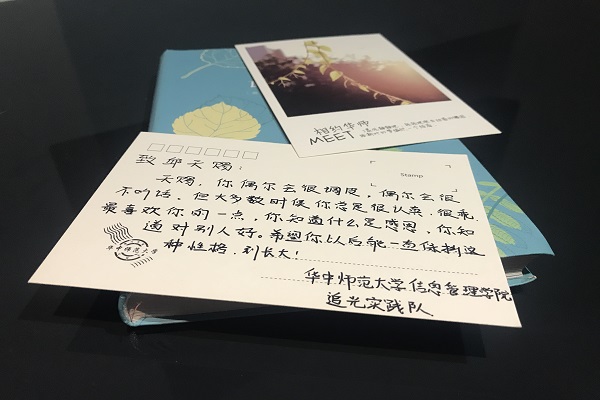 相约华师
MEET
致邱天赐:
Stamp
天赐,你偶尔会很调皮,偶尔会很
不听话,但大多数时候你总是很认真、很乖
最喜欢你的一点,你知道什么是感恩,你知
道对别人好。希望你以后能一直保持这
种性格,到长大!
华中师范大学
华中师范大学信息管理学院
追光实践队